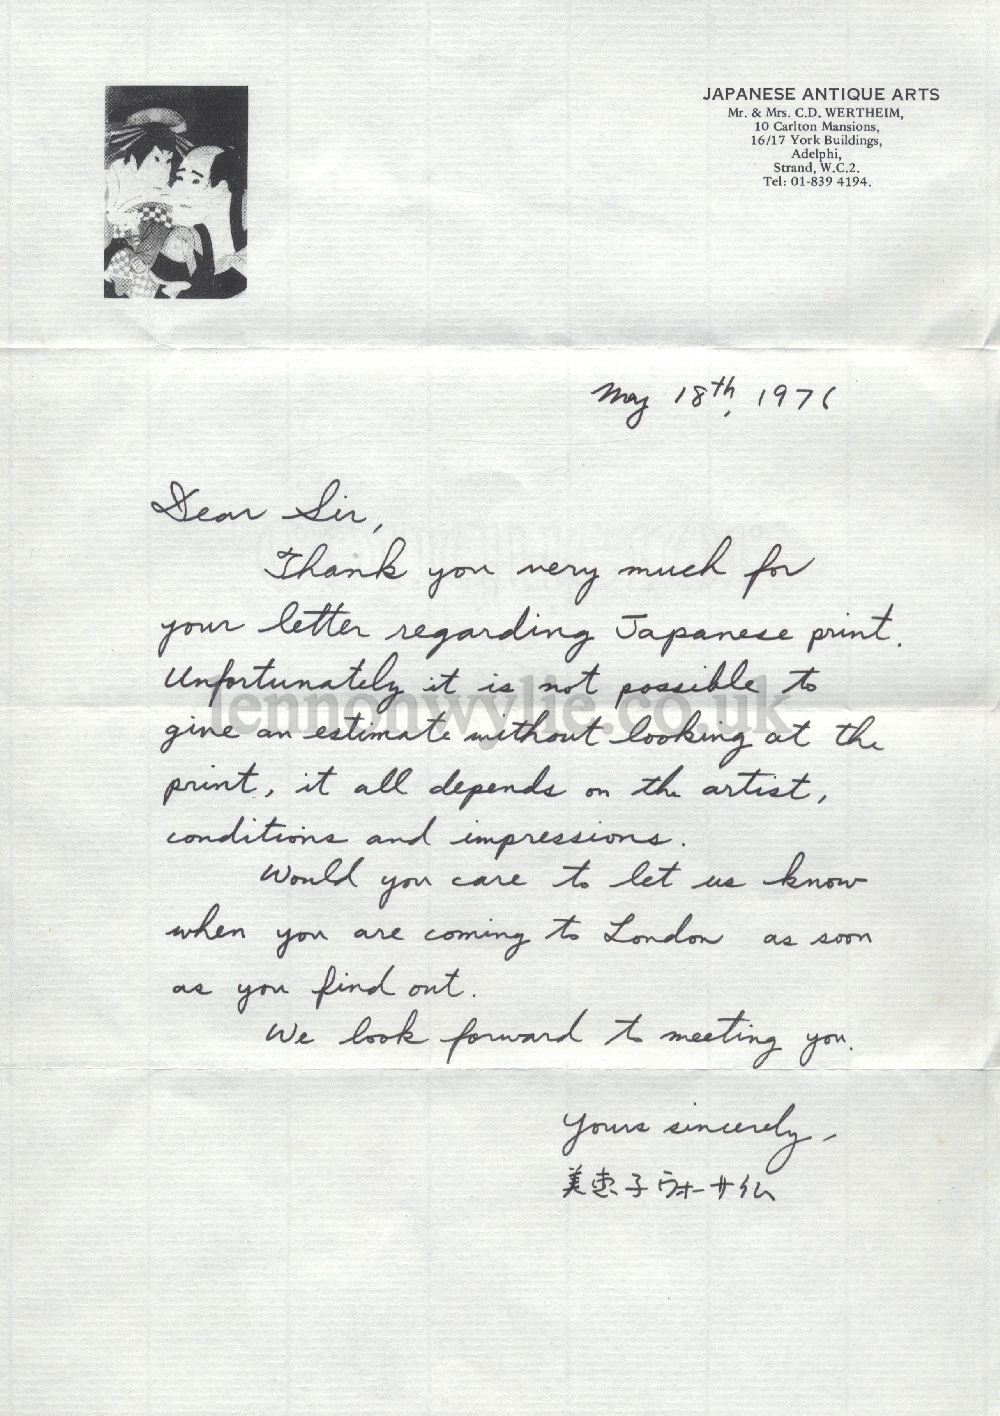 JAPANESE ANTIQUE ARTS
Mr. & Mrs. C.D. WERTHEIM,
10 Carlton Mansions,
16/17 York Buildings,
Adelphi,
Strand, W.C.2.
Tel: 01-839 4194.
May 18th, 1976
Dear Sir,
Thank you very much for
your letter regarding Japanese print.
Unfortunately it is not possible to
lennonwylie.co.uk
give an estimate without looking at the
print, it all depends on the artist,
conditions and impressions.
Would you care to let us know
when you are coming to London as soon
as you find out.
We look forward to meeting you.
Yours sincerely,
美恵子ウォーサイム